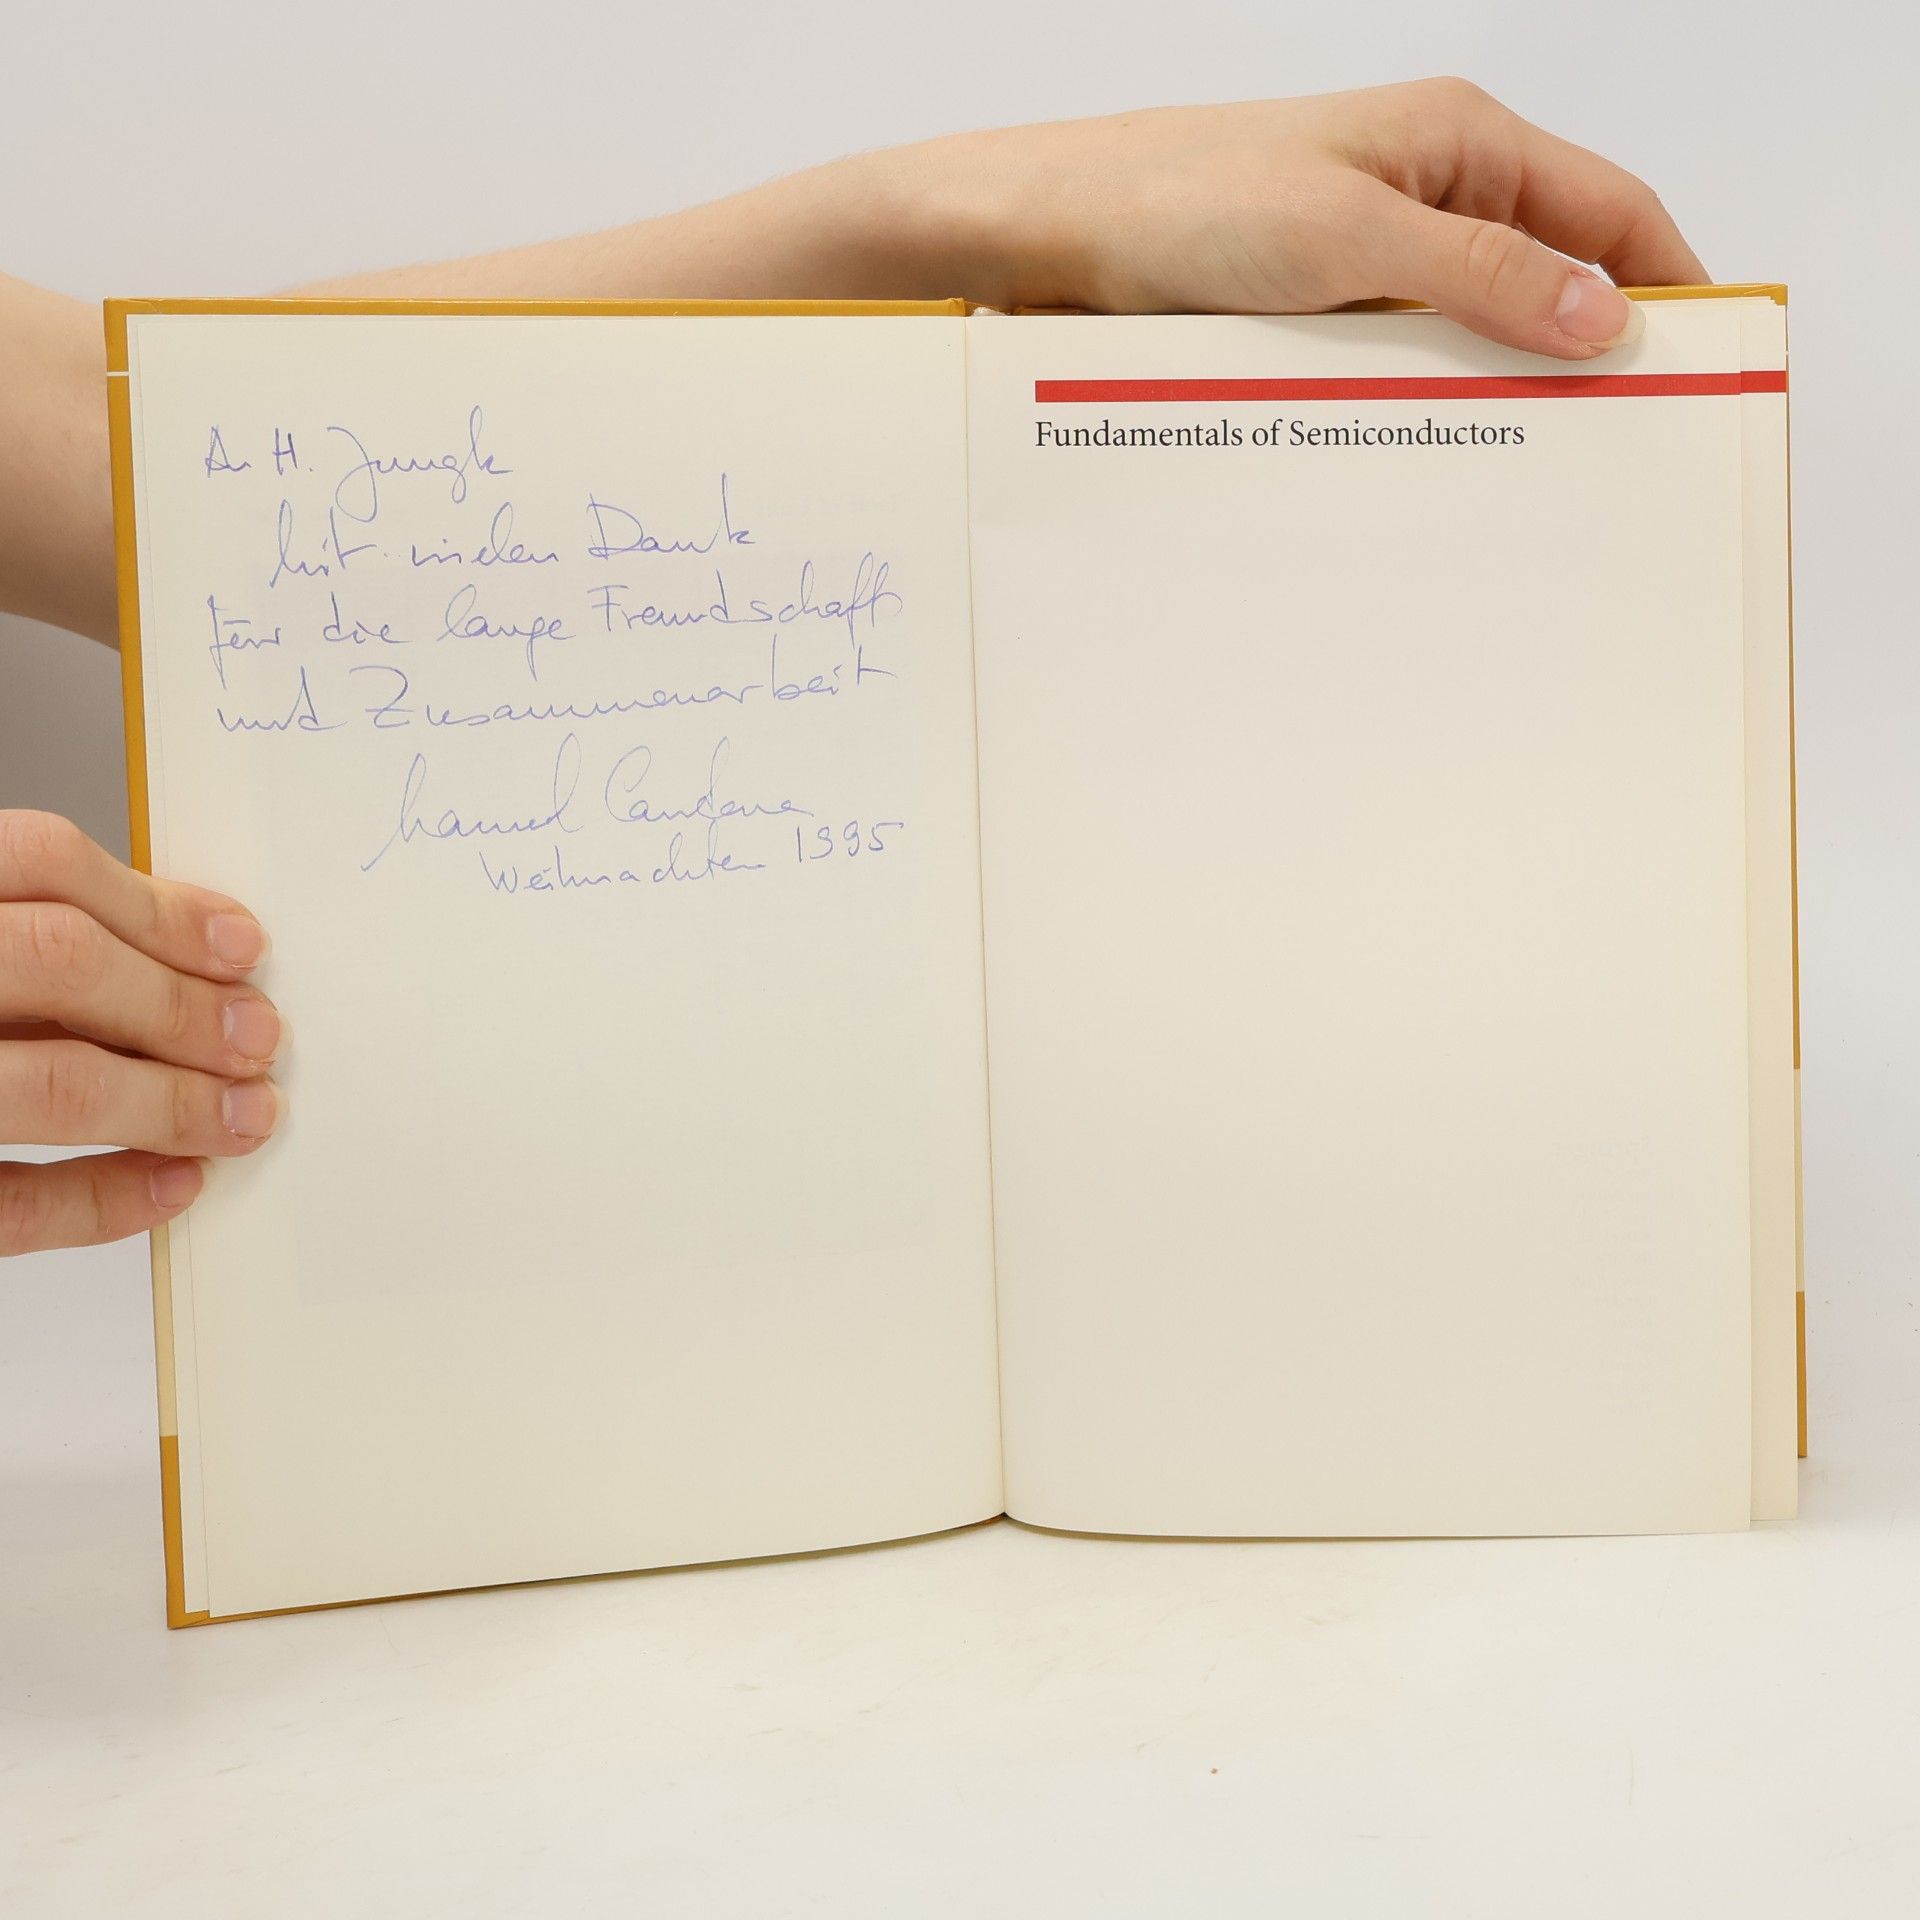 An H. Jungk
Mit vielen Dank
für die lange Freundschaft
und Zusammenarbeit
Manuel Cardona
Weihnachten 1995
Fundamentals of Semiconductors